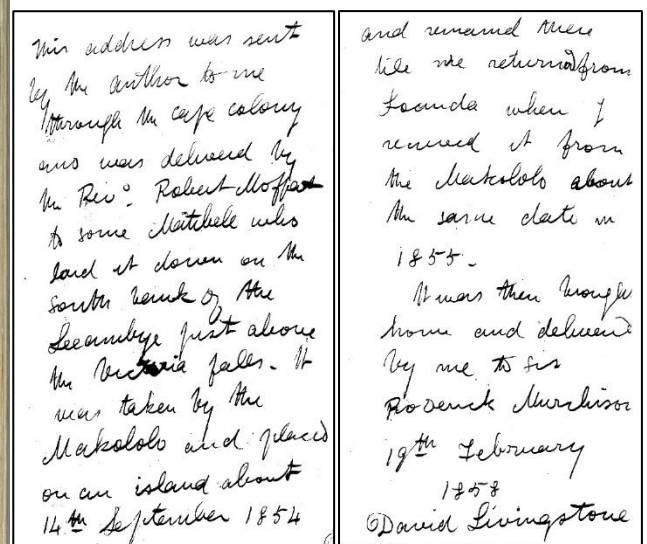 This address was sent
by the author to me
through the cape colony
and was delivered by
the Revd. Robert Moffat
to some Matibele who
laid it down on the
south bank of the
Leeambye just above
the Victoria falls. It
was taken by the
Makololo and placed
on an island about
14th September 1854
and remained there
till we returned from
Loanda when I
received it from
the Makololo about
the same date in
1855.
It was then brought
home and delivered
by me to Sir
Roderick Murchison
19th February
1858
David Livingstone